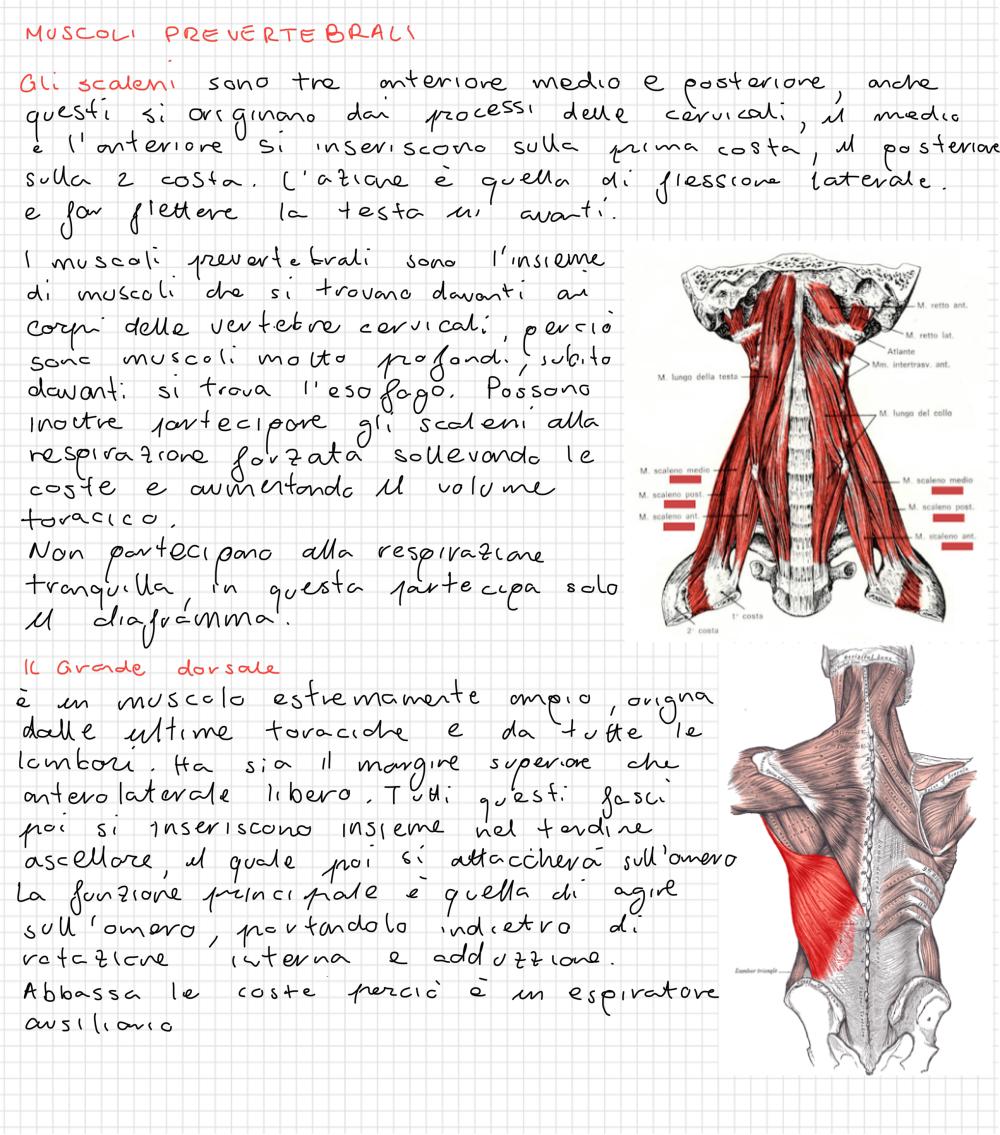 MUSCOLI PREVERTEBRALI
Gli scaleni sono tre anteriore medio e posteriore, anche
questi si originano dai processi delle cervicali, il medio
e l'anteriore si inseriscono sulla prima costa, il posteriore
sulla 2 costa. L'azione è quella di flessione laterale.
e far flettere la testa in avanti.
I muscoli prevertebrali sono l'insieme
di muscoli che si trovano davanti ai
corpi delle vertebre cervicali, perciò
sono muscoli molto profondi, subito
davanti si trova l'esofago. Possono
inoltre partecipare gli scaleni alla
respirazione forzata sollevando le
coste e aumentando il volume
toracico.
Non partecipano alla respirazione
tranquilla, in questa partecipa solo
il diaframma.
M. retto ant.
M. retto lat.
Atlante
Mm. intertrasv. ant.
M. lungo della testa
M. lungo del collo
M. scaleno medio
M. scaleno post.
M. scaleno ant.
M. scaleno medio
M. scaleno post.
M. scaleno ant.
1ª costa
2ª costa
Il Grande dorsale
è un muscolo estremamente ampio, origna
dalle ultime toraciche e da tutte le
lombari. Ha sia il margine superiore che
anterolaterale libero. Tutti questi fasci
poi si inseriscono insieme nel tendine
ascellare, il quale poi si attaccherà sull'omero
La funzione principale è quella di agire
sull'omero, portandolo indietro di
rotazione interna e adduzione.
Abbassa le coste perciò è un espiratore
ausiliario
Occipital bone
Lumbar triangle